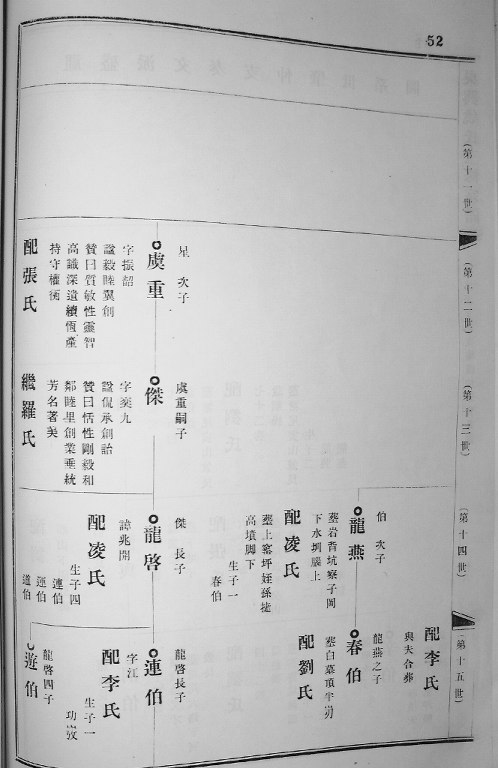 52
(第十一世)
(第十二世)
(第十三世)
(第十四世)
(第十五世)
星 次子
虞重
字振韶
諡毅睦翼創
贊曰質敏性靈智
高識深遺續恆產
持守權衡
配張氏
虞重嗣子
傑
字奕九
諡侃承創詒
贊曰恬性剛毅和
鄰睦里創業垂統
芳名著美
繼羅氏
伯 次子
龍燕
葬岩背坑寮子岡
下水圳牆上
配凌氏
葬上寨坪姪孫㨗
高墳脚下
生子一
春伯
傑 長子
龍啓
諱兆開
配凌氏
生子四
連伯
運伯
道伯
配李氏
與夫合葬
龍燕之子
春伯
葬白葉頂半岃
配劉氏
龍啓長子
連伯
字江
配李氏
生子一
龍啓四子
遊伯